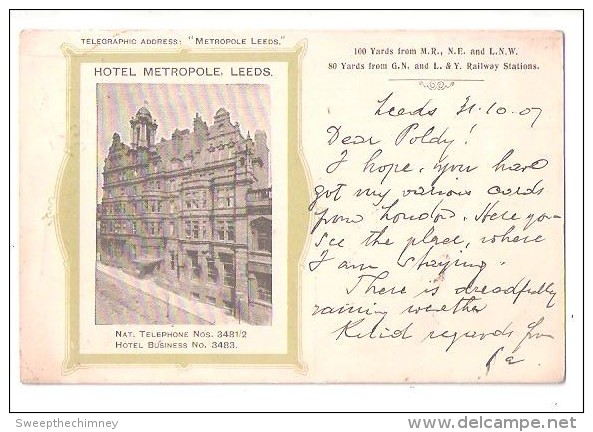 TELEGRAPHIC ADDRESS: "METROPOLE LEEDS."
HOTEL METROPOLE, LEEDS.
NAT. TELEPHONE NOS. 3481/2
HOTEL BUSINESS NO. 3483.
100 Yards from M.R., N.E. and L.N.W.
80 Yards from G.N. and L. & Y. Railway Stations.
Leeds 31.10.07
Dear Poldy!
I hope, you have
got my various cards
from London. Here you
see the place, where
I am staying.
There is dreadfully
raining weather
Kind regards from
Sweepthechimney
www.delcampe.net